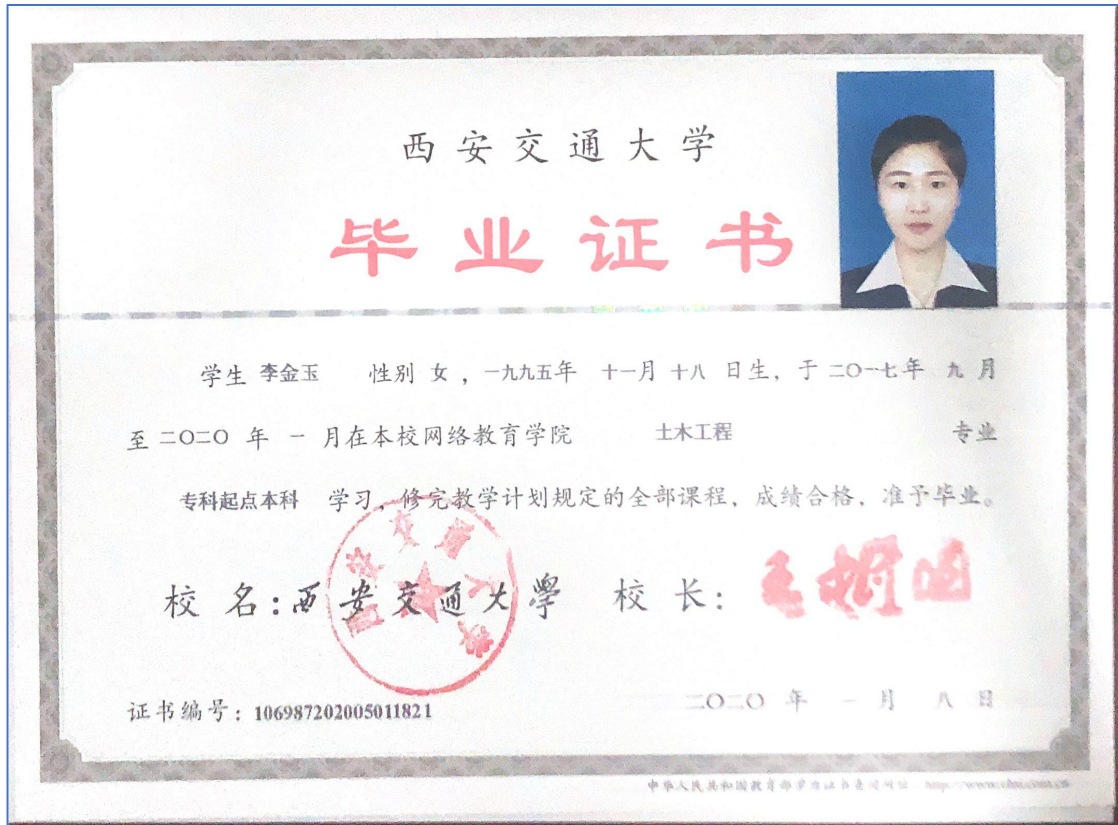 西安交通大学
毕业证书
学生 李金玉 性别 女 ，一九九五年 十一月 十八 日生，于 二〇一七年 九 月
至 二〇二〇 年 一 月在本校网络教育学院 土木工程 专业
专科起点本科 学习，修完教学计划规定的全部课程，成绩合格，准予毕业。
校 名：西安交通大學 校 长：
西安交通大学
证书编号：106987202005011821 二〇二〇 年 一 月 八 日
中华人民共和国教育部学历证书查询网址